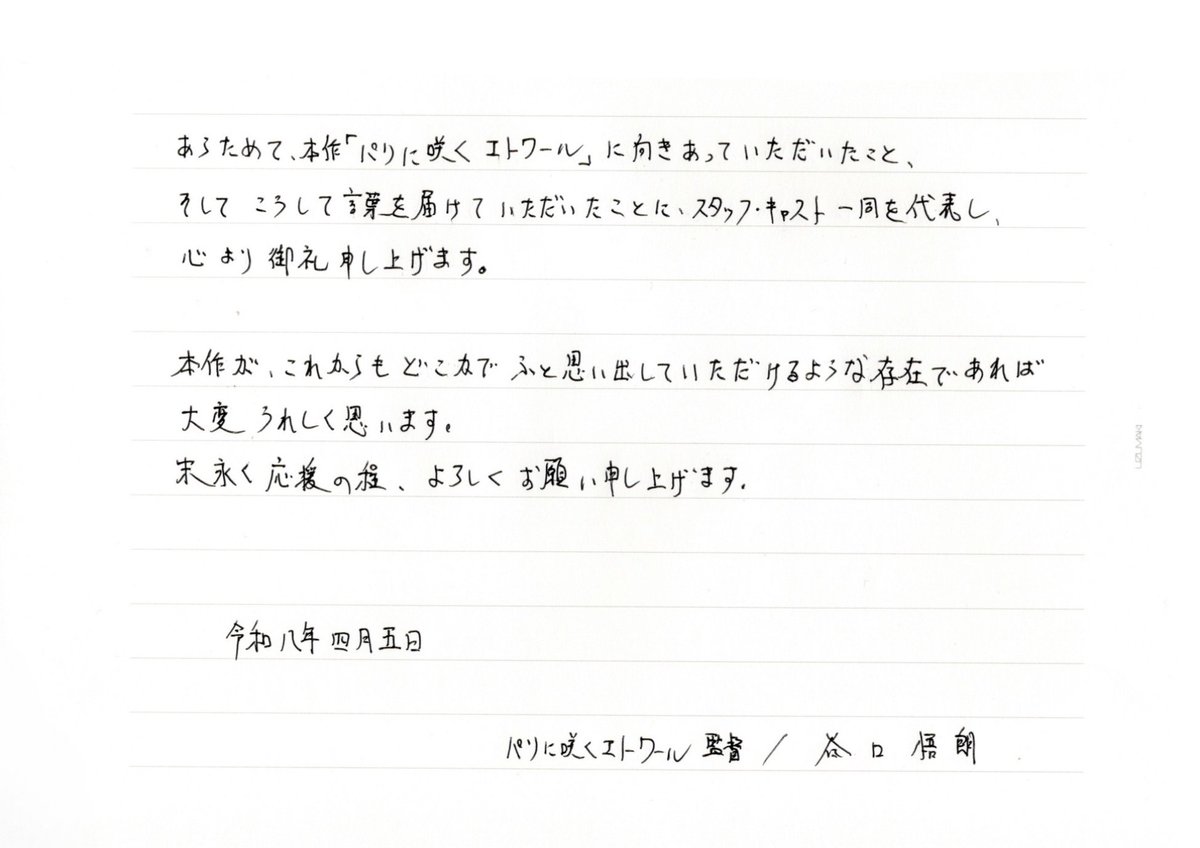 あらためて、本作「パリに咲くエトワール」に向きあっていただいたこと、
そして こうして言葉を届けていただいたことに、スタッフ・キャスト一同を代表し、
心より御礼申し上げます。
本作が、これからもどこかでふと思い出していただけるような存在であれば
大変うれしく思います。
末永く応援の程、よろしくお願い申し上げます。
令和八年四月五日
パリに咲くエトワール 監督 / 谷口 悟朗